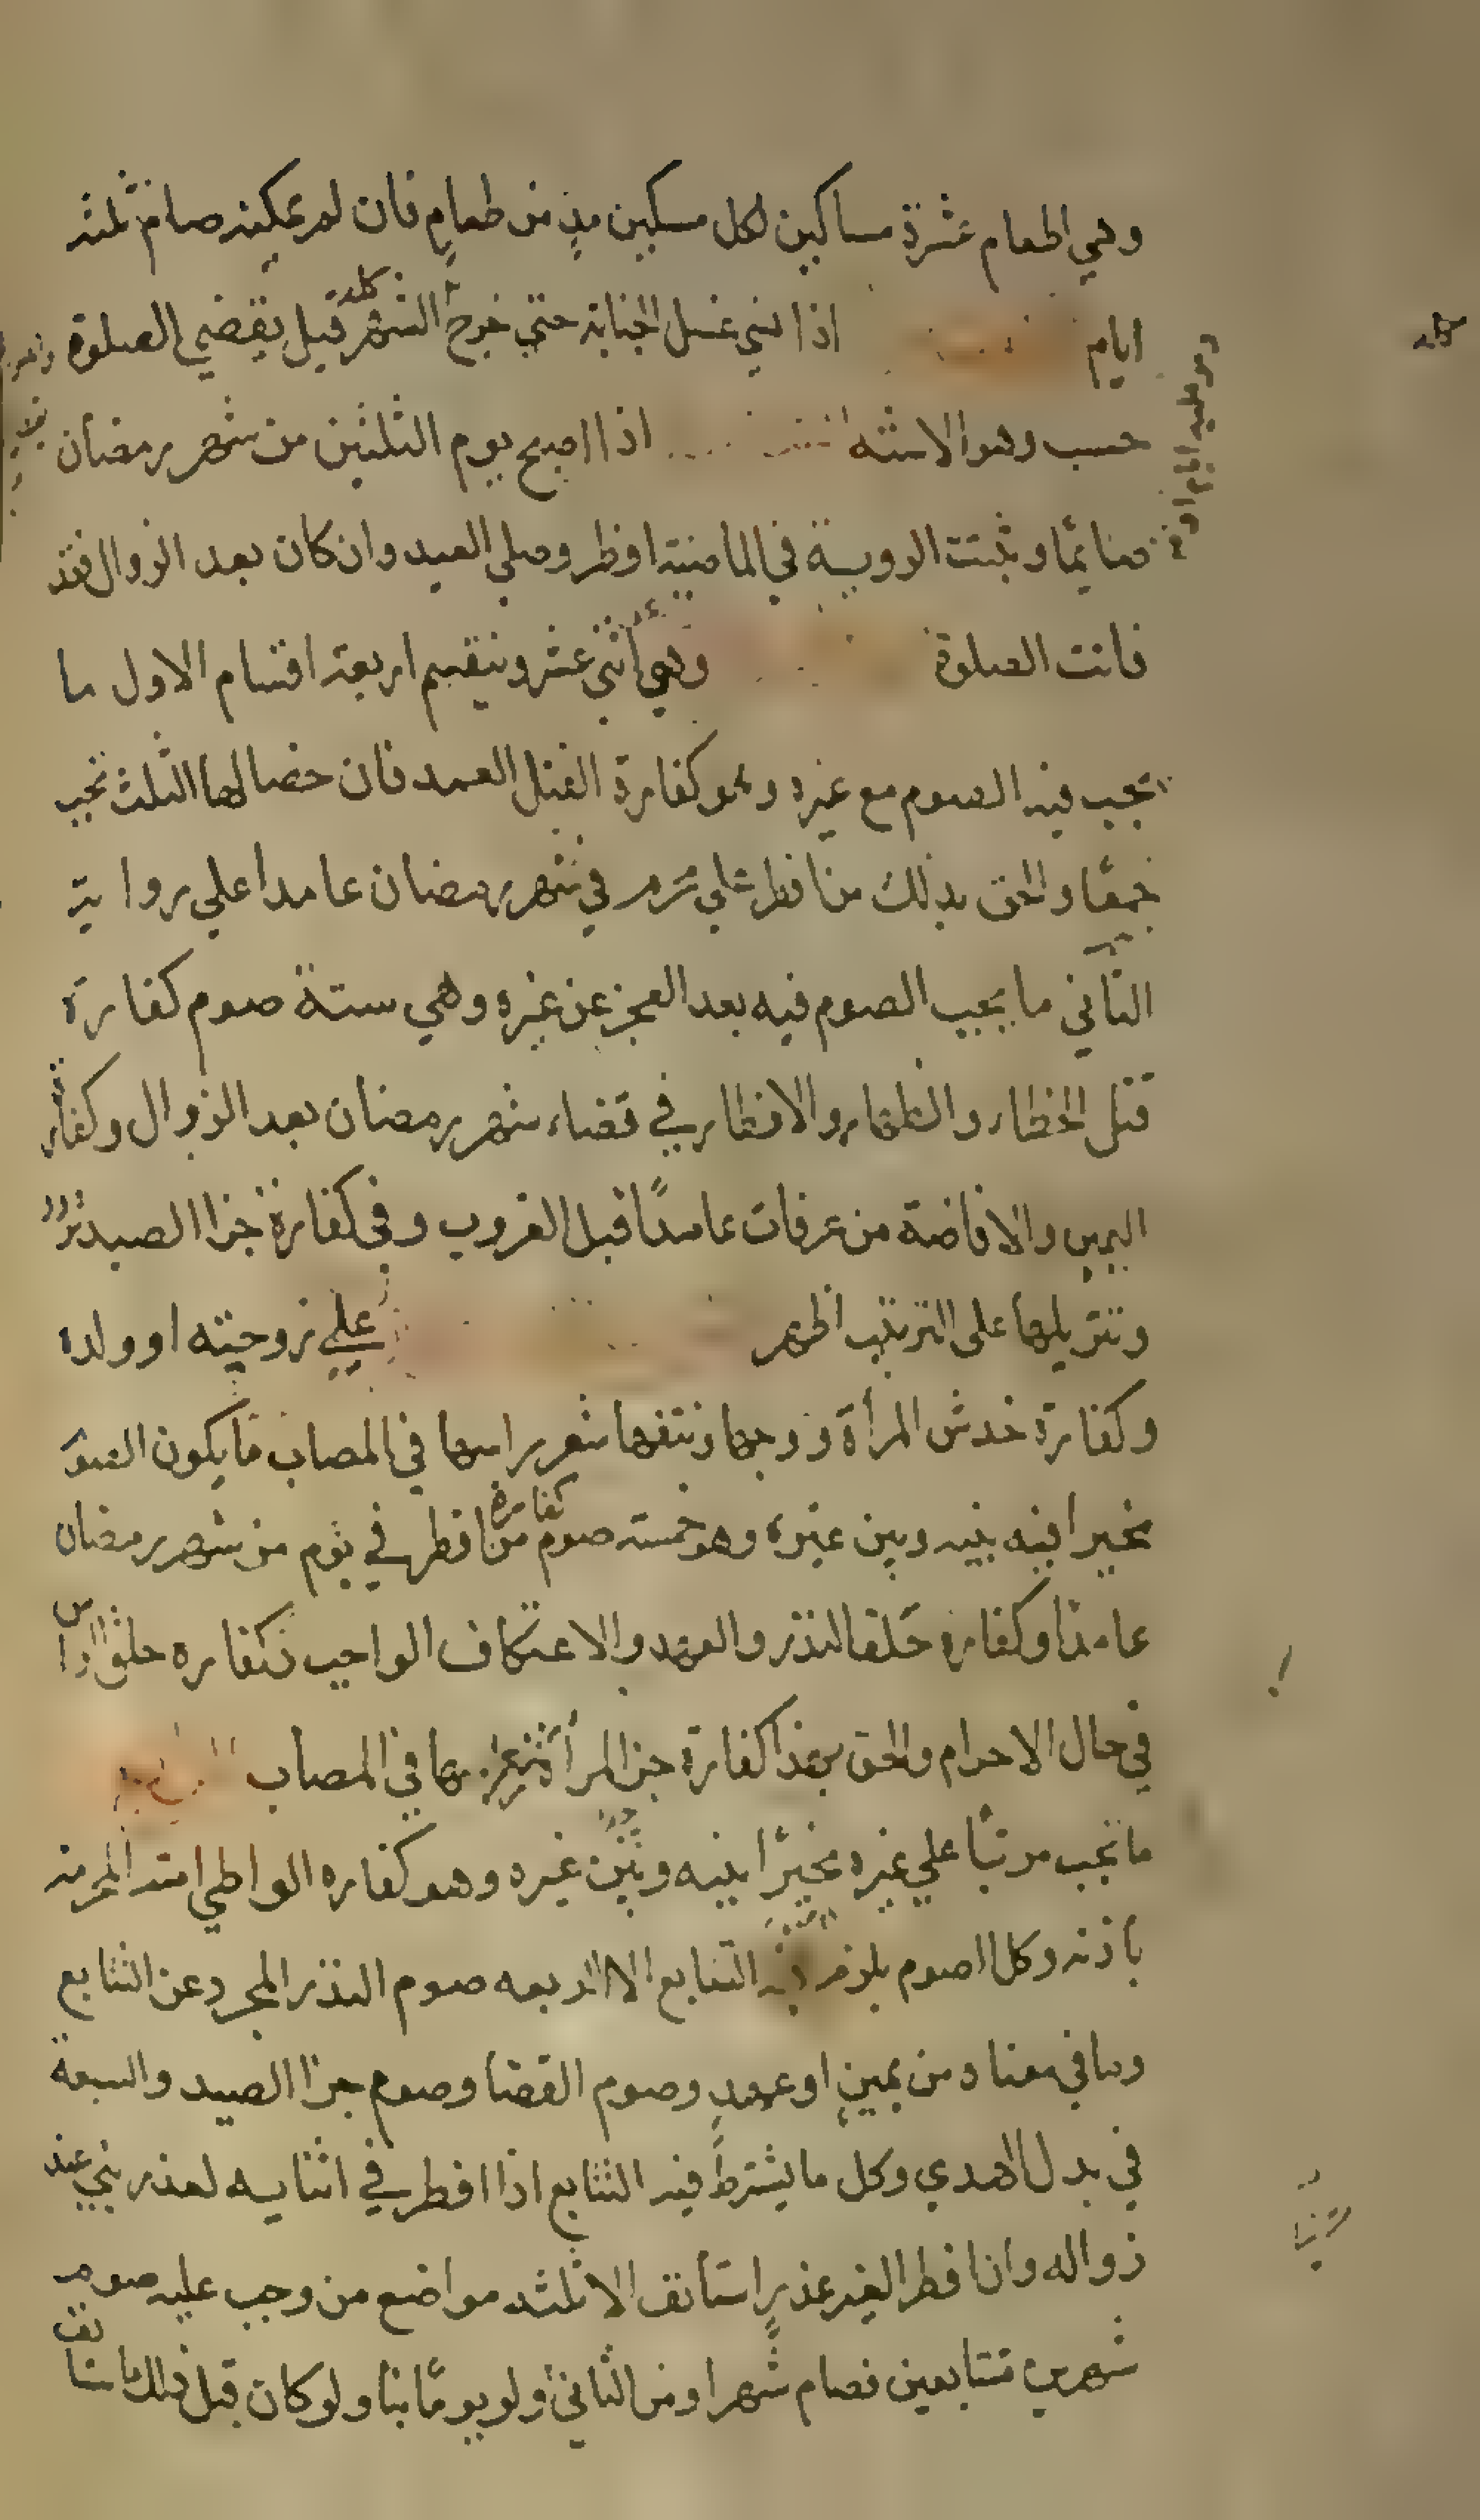 وهي اطعام عشرة مساكين لكل مسكين مد من طعام فان لم يمكنه صام ثلثه
ايام اذا نسي غسل الجنابة حتي خرج الشهر كله قيل يقضي الصلوة
حسب وهو الاشبه اذا اصبح يوم الثلثين من شهر رمضان
صائما وثبتت الروية في الماضية افطر وصلي العيد وان كان بعد الزوال فقد
فاتت الصلوة وهي اثني عشر وينقسم اربعة اقسام الاول ما
يجب فيه الصوم مع غيره وهو كفارة القتل العمد فان خصالها الثلث تجب
جميعا والحق بذلك من افطر علي محرم في شهر رمضان عامدا علي رواية
الثاني ما يجب الصوم فيه بعد العجز عن غيره وهي ستة صوم كفارة
قتل الخطاء والظهار والافطار في قضاء شهر رمضان بعد الزوال وكفارة
اليمين والافاضة من عرفات عامدا قبل الغروب وفي كفارة جزا الصيد تردد
وتنزيلها علي الترتيب اظهر علي زوجته او ولده
وكفارة خدش المرأة وجهها ونتفها شعر راسها في المصاب ما يكون الصوم
مخيرا فيه بينه وبين غيره وهو خمسة صوم كفارة من افطر في يوم من شهر رمضان
عامدا وكفارة خلف النذر والعهد والاعتكاف الواجب وكفاره حلق الراس
في حال الاحرام والحق بهذا كفارة جز المرأة شعر راسها في المصاب
ما يجب مرتبا علي غيره مخيرا بينه وبين غيره وهو كفاره الواطي امته المحرمة
باذنه وكل الصوم يلزم فيه التتابع الا اربعه صوم النذر المجرد عن التتابع
وما في معناه من يمين او عهد وصوم القضا وصوم جزا الصيد والسبعة
في بدل الهدي وكل ما يشترط فيه التتابع اذا افطر في اثنايه لعذر بني عند
زواله وان افطر لغير عذر استأنف الا ثلثه مواضع من وجب عليه صوم
شهرين متتابعين فصام شهرا ومن الثاني ولو يوما بنا ولو كان قبل ذلك استانف